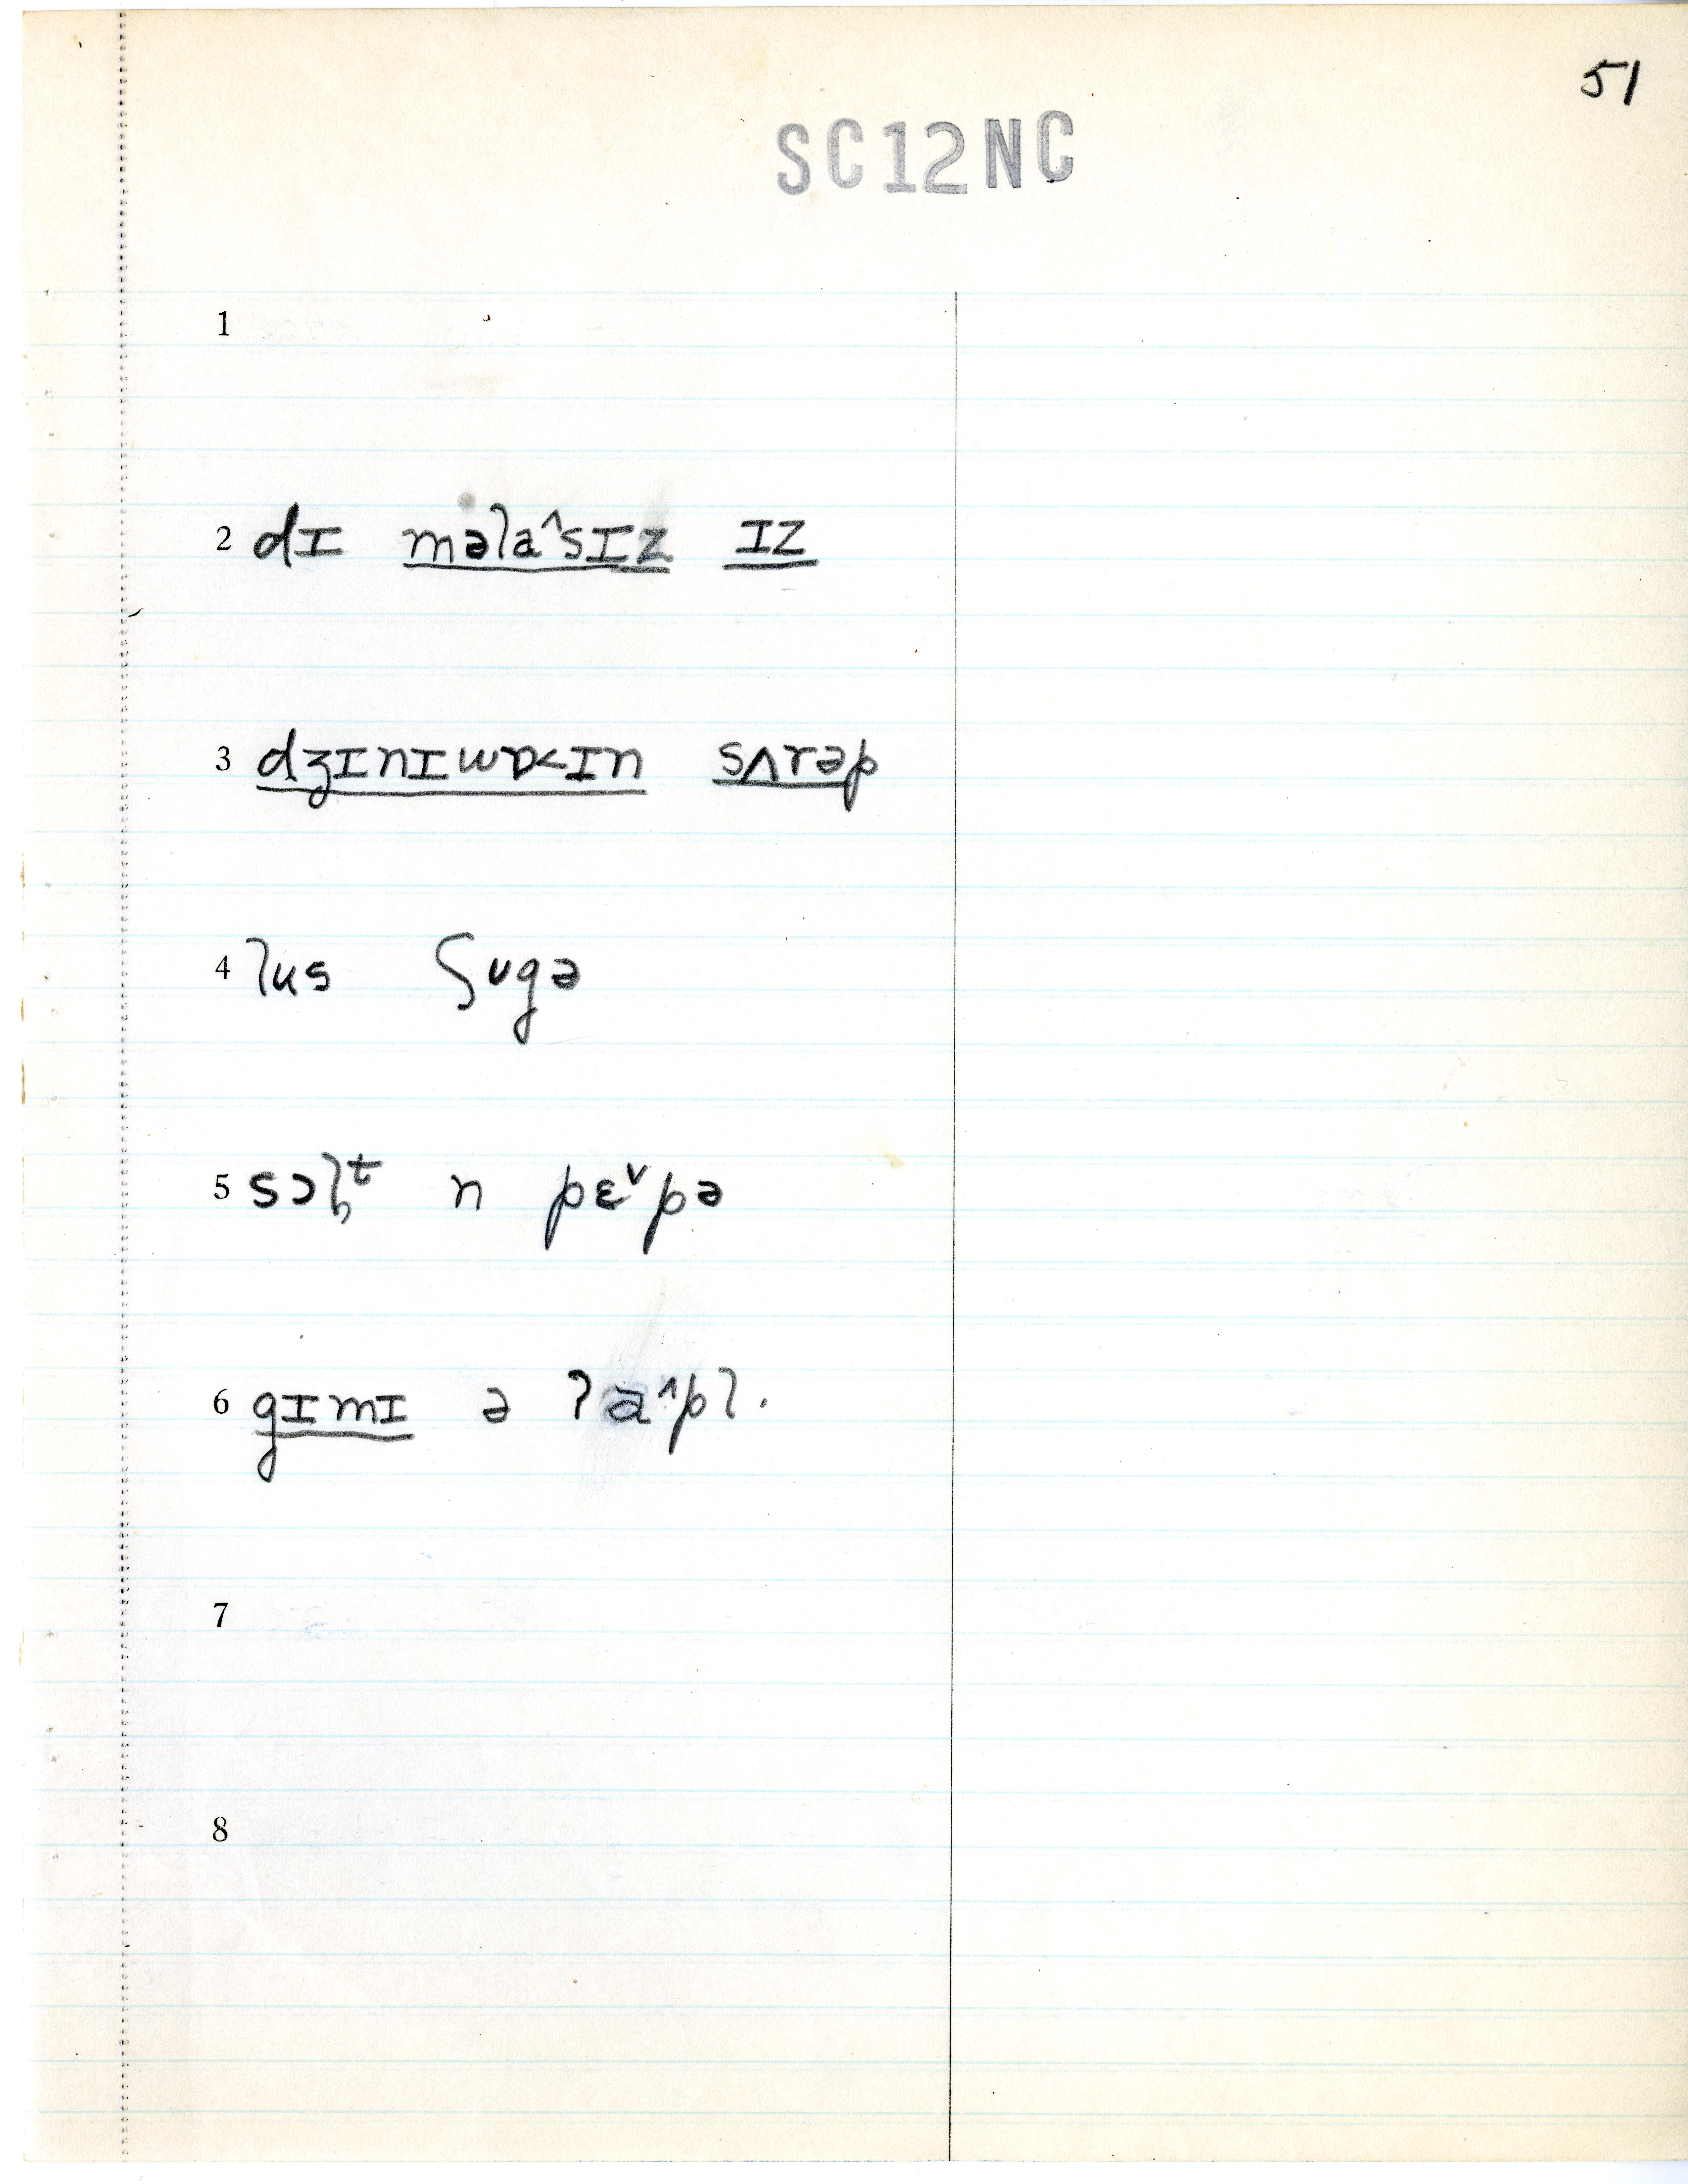 51
SC12NC
1
2 dɪ məla^sɪz ɪz
3 dʒɪnɪwɒ<ɪn sʌrəp
4 lus ʃugə
5 sɔl̥ᵗ n pɛ˅pə
6 gɪmɪ ə ʔa^pl.
7
8